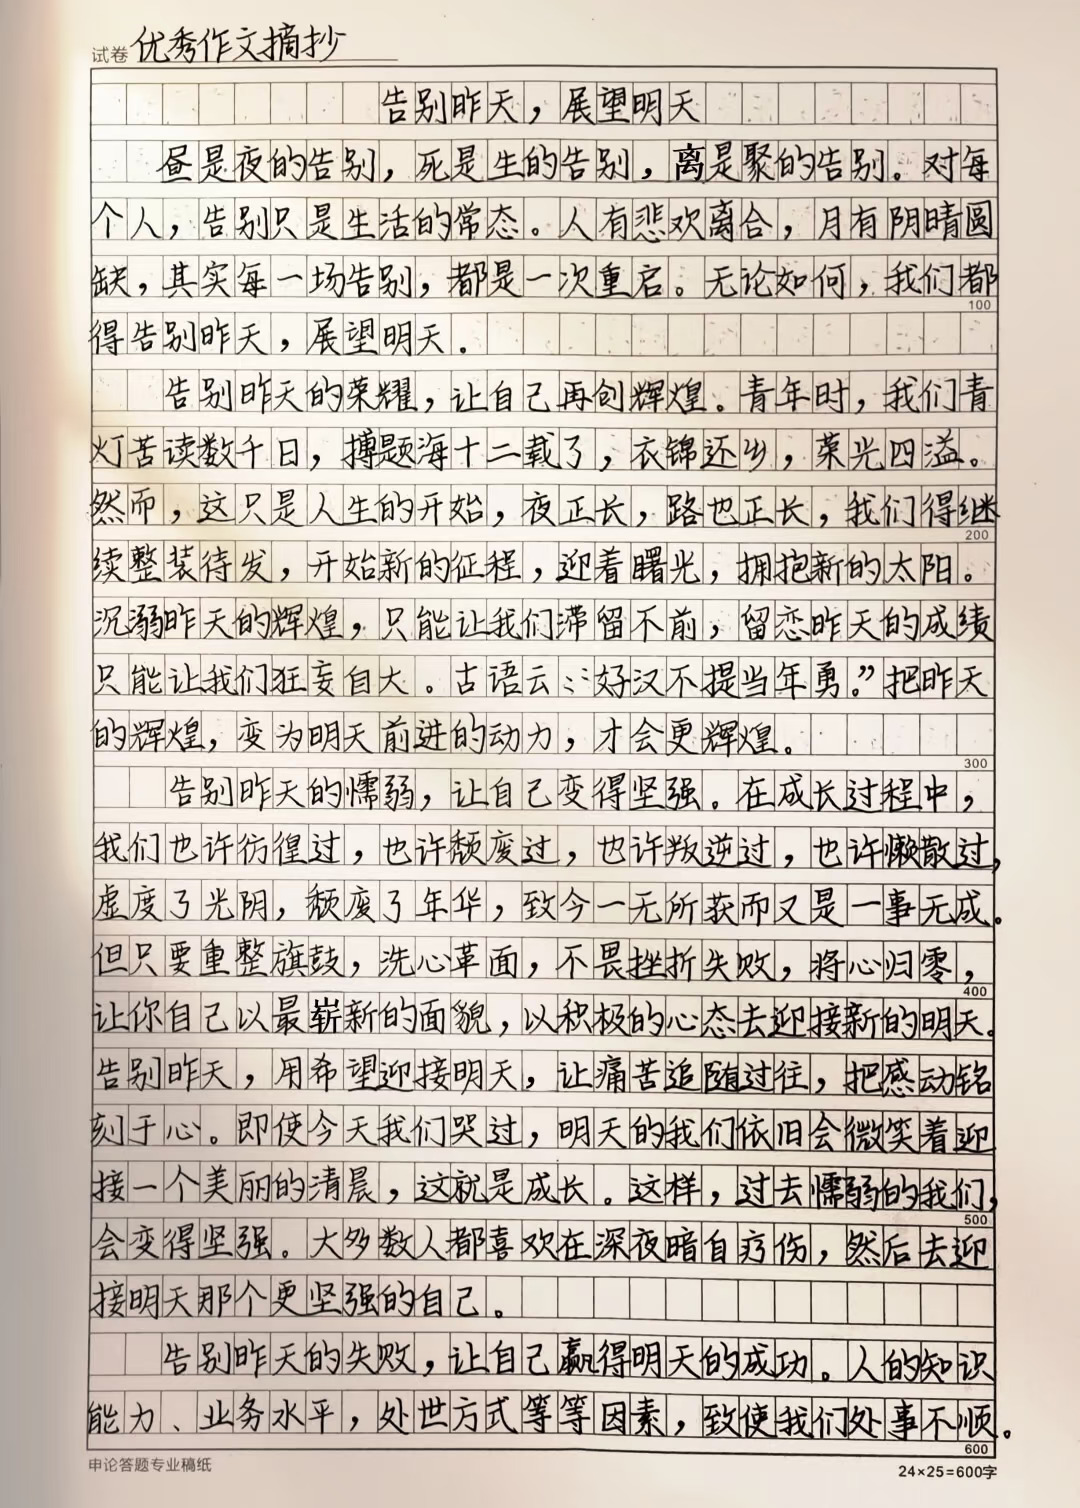 试卷 优秀作文摘抄
告别昨天，展望明天
昼是夜的告别，死是生的告别，离是聚的告别。对每
个人，告别只是生活的常态。人有悲欢离合，月有阴晴圆
缺，其实每一场告别，都是一次重启。无论如何，我们都
100
得告别昨天，展望明天．
告别昨天的荣耀，让自己再创辉煌。青年时，我们青
灯苦读数千日，搏题海十二载了，衣锦还乡，荣光四溢。
然而，这只是人生的开始，夜正长，路也正长，我们得继
200
续整装待发，开始新的征程，迎着曙光，拥抱新的太阳。
沉溺昨天的辉煌，只能让我们滞留不前，留恋昨天的成绩
只能让我们狂妄自大。古语云：“好汉不提当年勇。”把昨天
的辉煌，变为明天前进的动力，才会更辉煌。
300
告别昨天的懦弱，让自己变得坚强。在成长过程中，
我们也许彷徨过，也许颓废过，也许叛逆过，也许懒散过，
虚度了光阴，颓废了年华，致今一无所获而又是一事无成。
但只要重整旗鼓，洗心革面，不畏挫折失败，将心归零，
400
让你自己以最崭新的面貌，以积极的心态去迎接新的明天。
告别昨天，用希望迎接明天，让痛苦追随过往，把感动铭
刻于心。即使今天我们哭过，明天的我们依旧会微笑着迎
接一个美丽的清晨，这就是成长。这样，过去懦弱的我们，
500
会变得坚强。大多数人都喜欢在深夜暗自疗伤，然后去迎
接明天那个更坚强的自己。
告别昨天的失败，让自己赢得明天的成功。人的知识
能力、业务水平，处世方式等等因素，致使我们处事不顺。
600
申论答题专业稿纸
24×25=600字